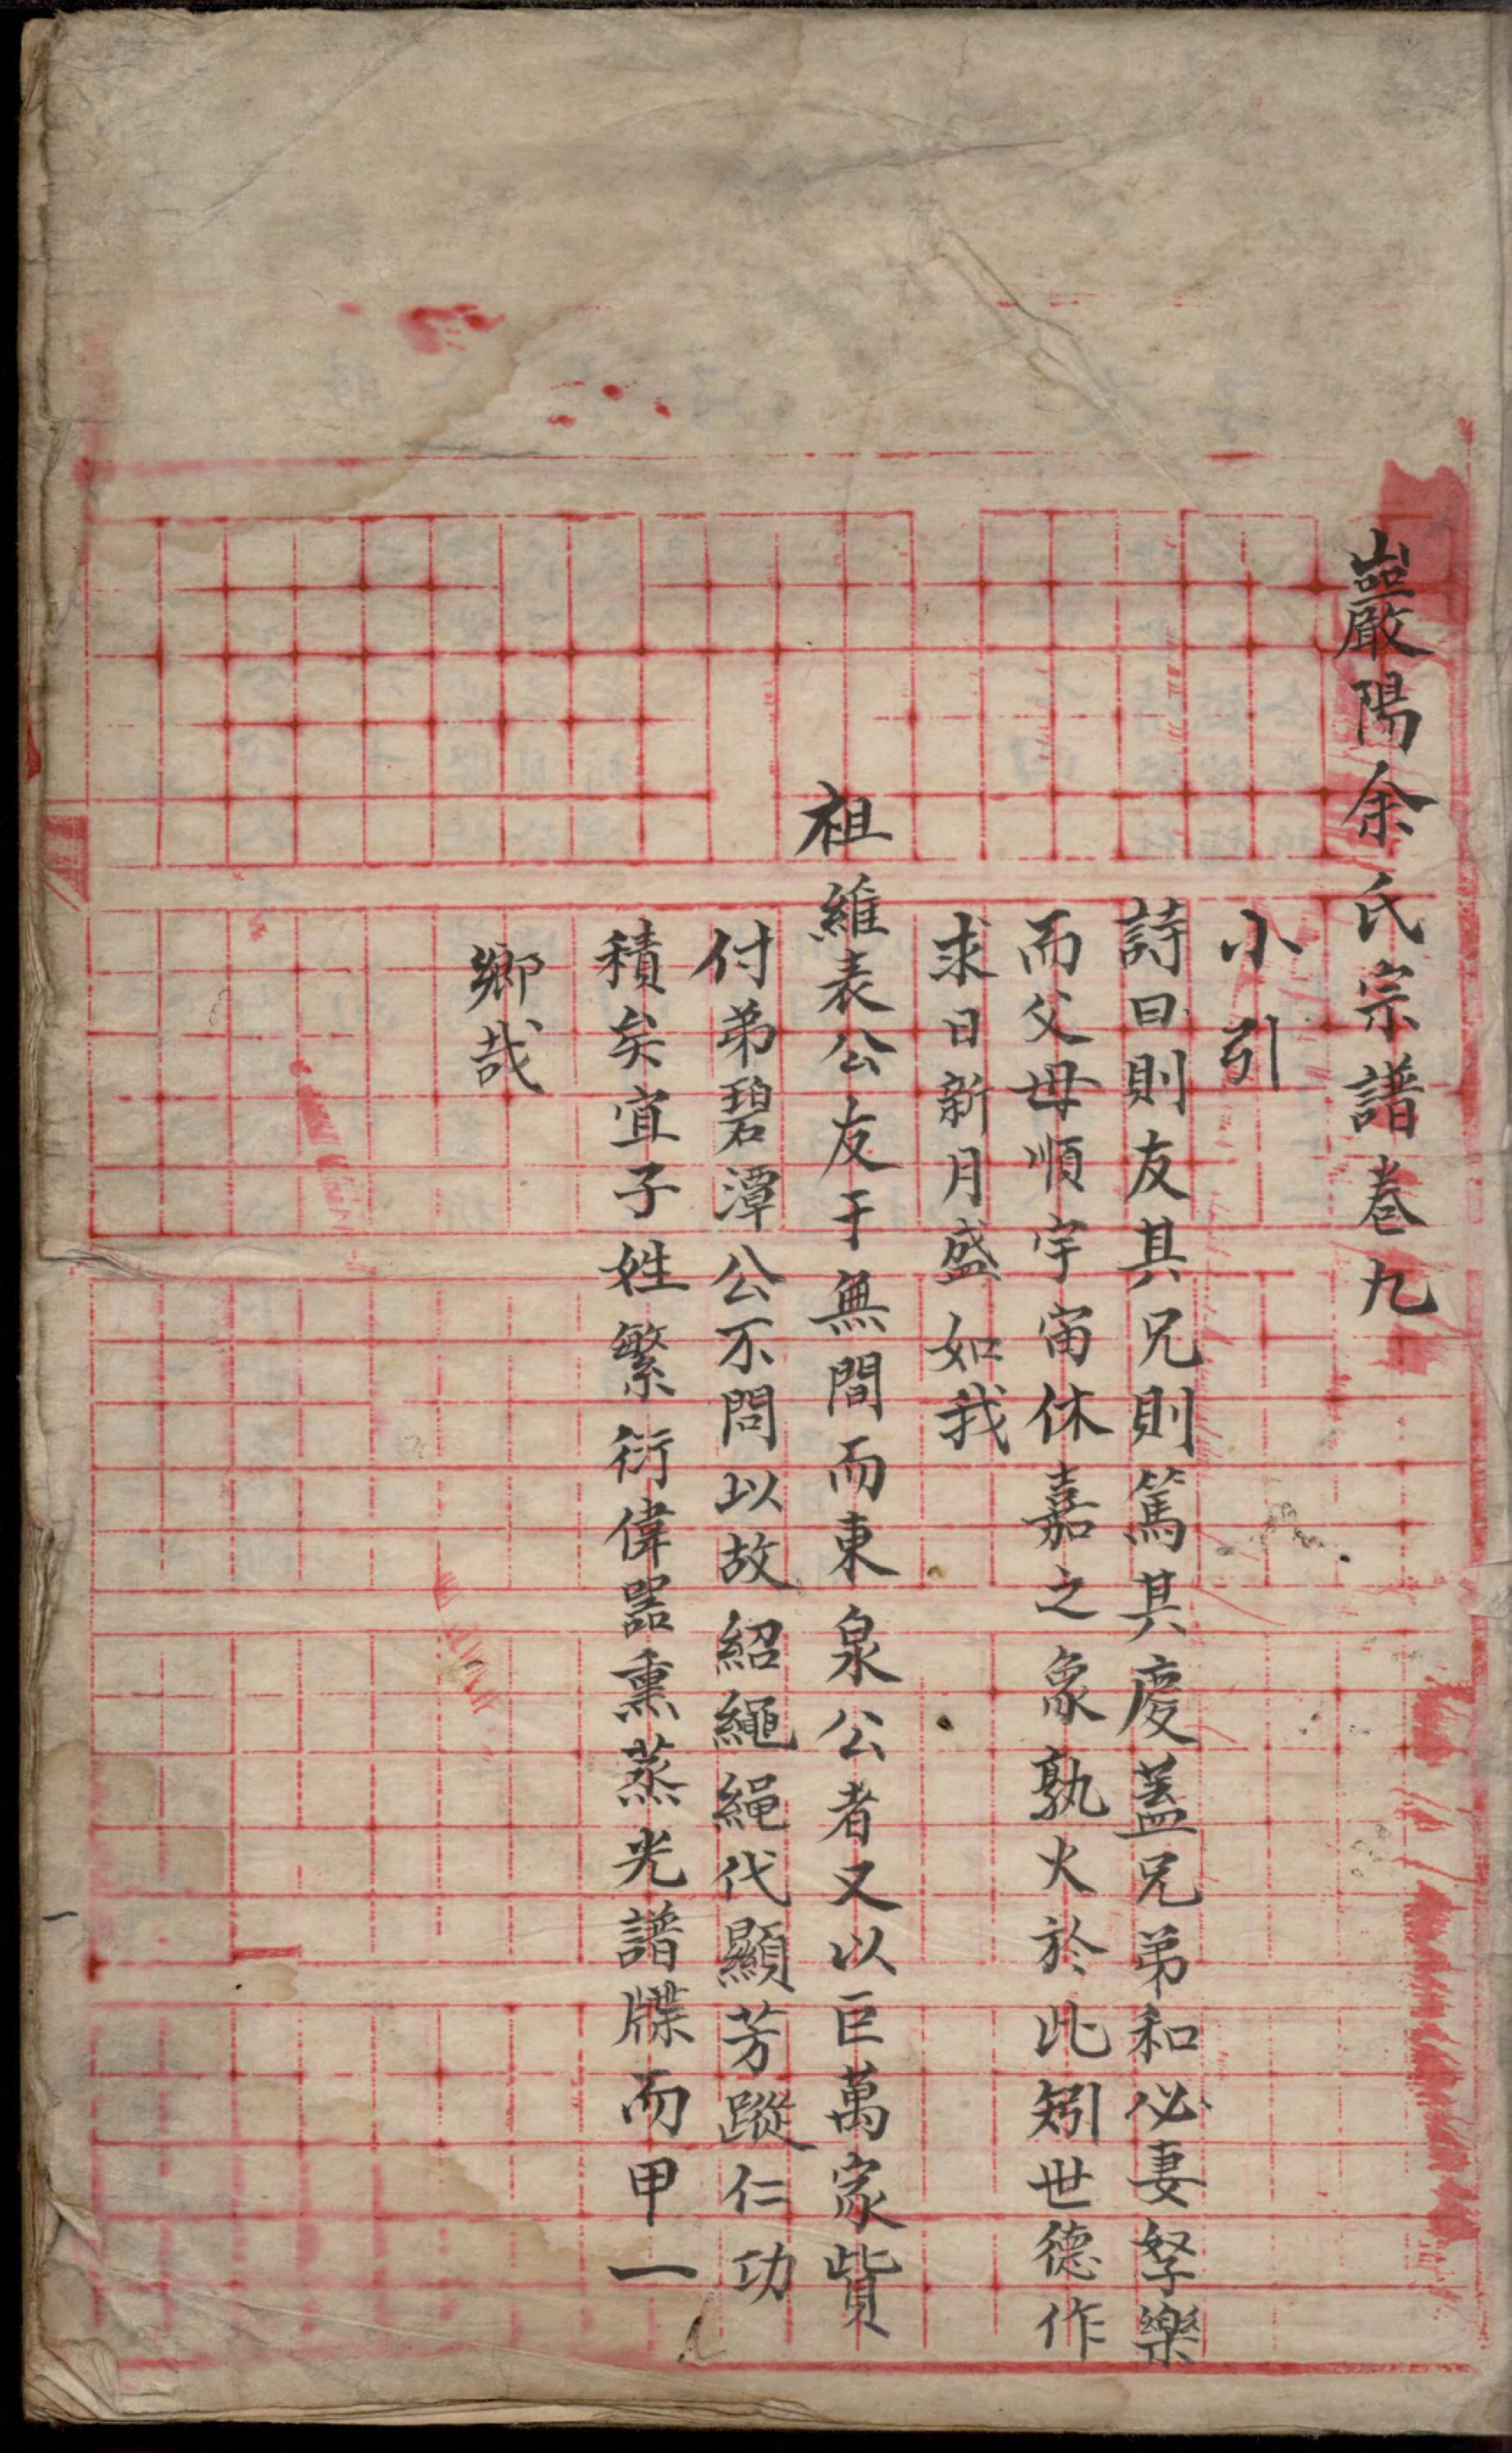 巖陽余氏宗譜卷九
小引
詩曰則友其兄則篤其慶蓋兄弟和必妻孥樂
而父母順宇宙休嘉之象孰大於此矧世德作
求日新月盛如我
祖維表公友于無間而東泉公者又以巨萬家貲
付弟碧潭公不問以故紹繩繩代顯芳蹤仁功
積矣宜子姓繁衍偉器熏蒸光譜牒而甲一
鄉哉
一